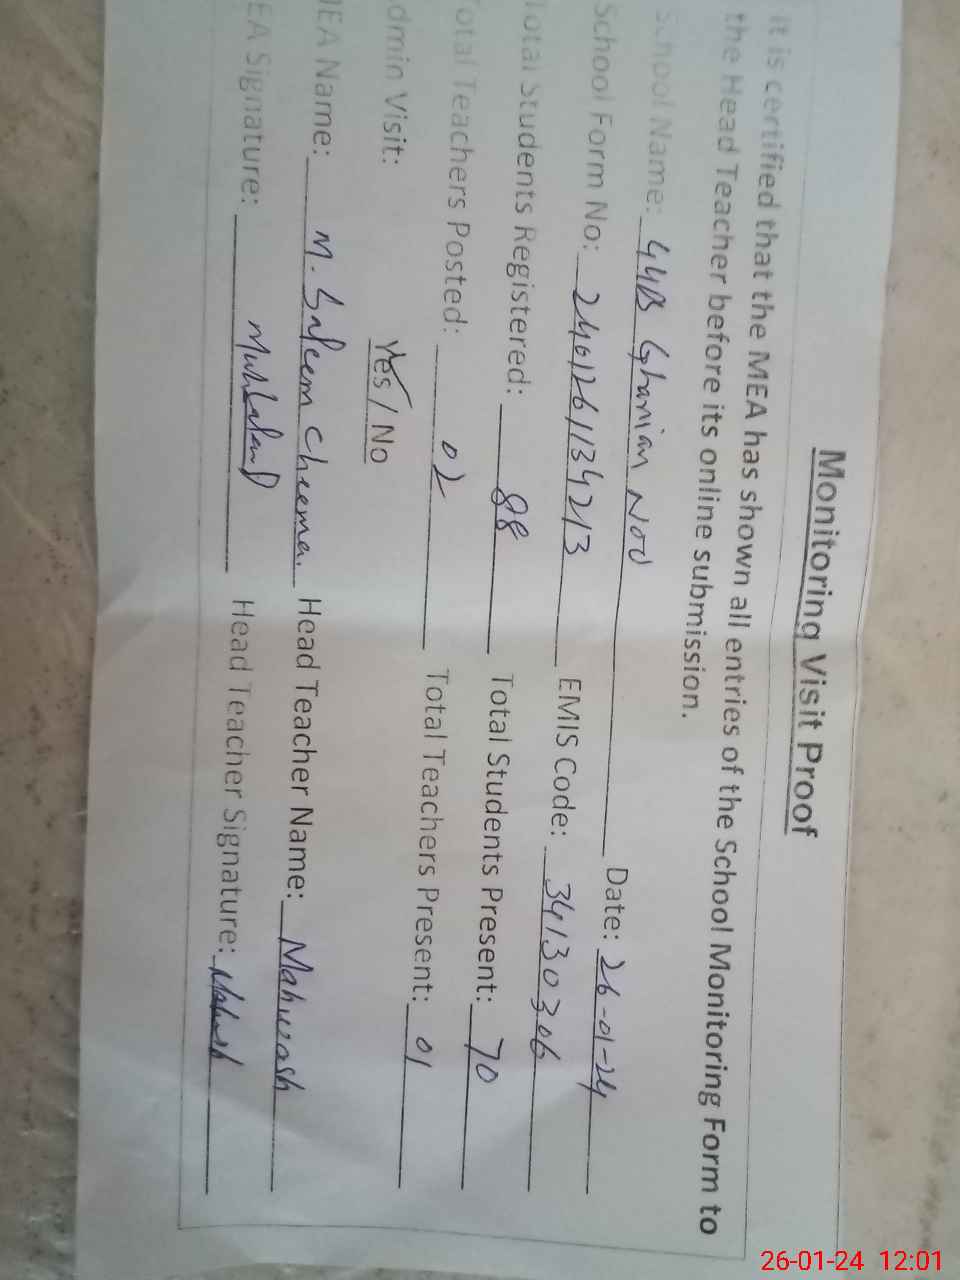 Monitoring Visit Proof
It is certified that the MEA has shown all entries of the School Monitoring Form to
the Head Teacher before its online submission.
School Name: Ghanian Noo Date: 26-01-24
School Form No: 2401261134213 EMIS Code: 34130306
Total Students Registered: 88 Total Students Present: 70
Total Teachers Posted: 02 Total Teachers Present: 01
dmin Visit: Yes / No
MEA Name: M. Saleem Cheema. Head Teacher Name: Mahwash
EA Signature: Head Teacher Signature: Mahwash
26-01-24 12:01